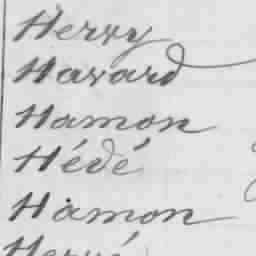 Hervy
Havard
Hamon
Hédé
Hamon
Hervé